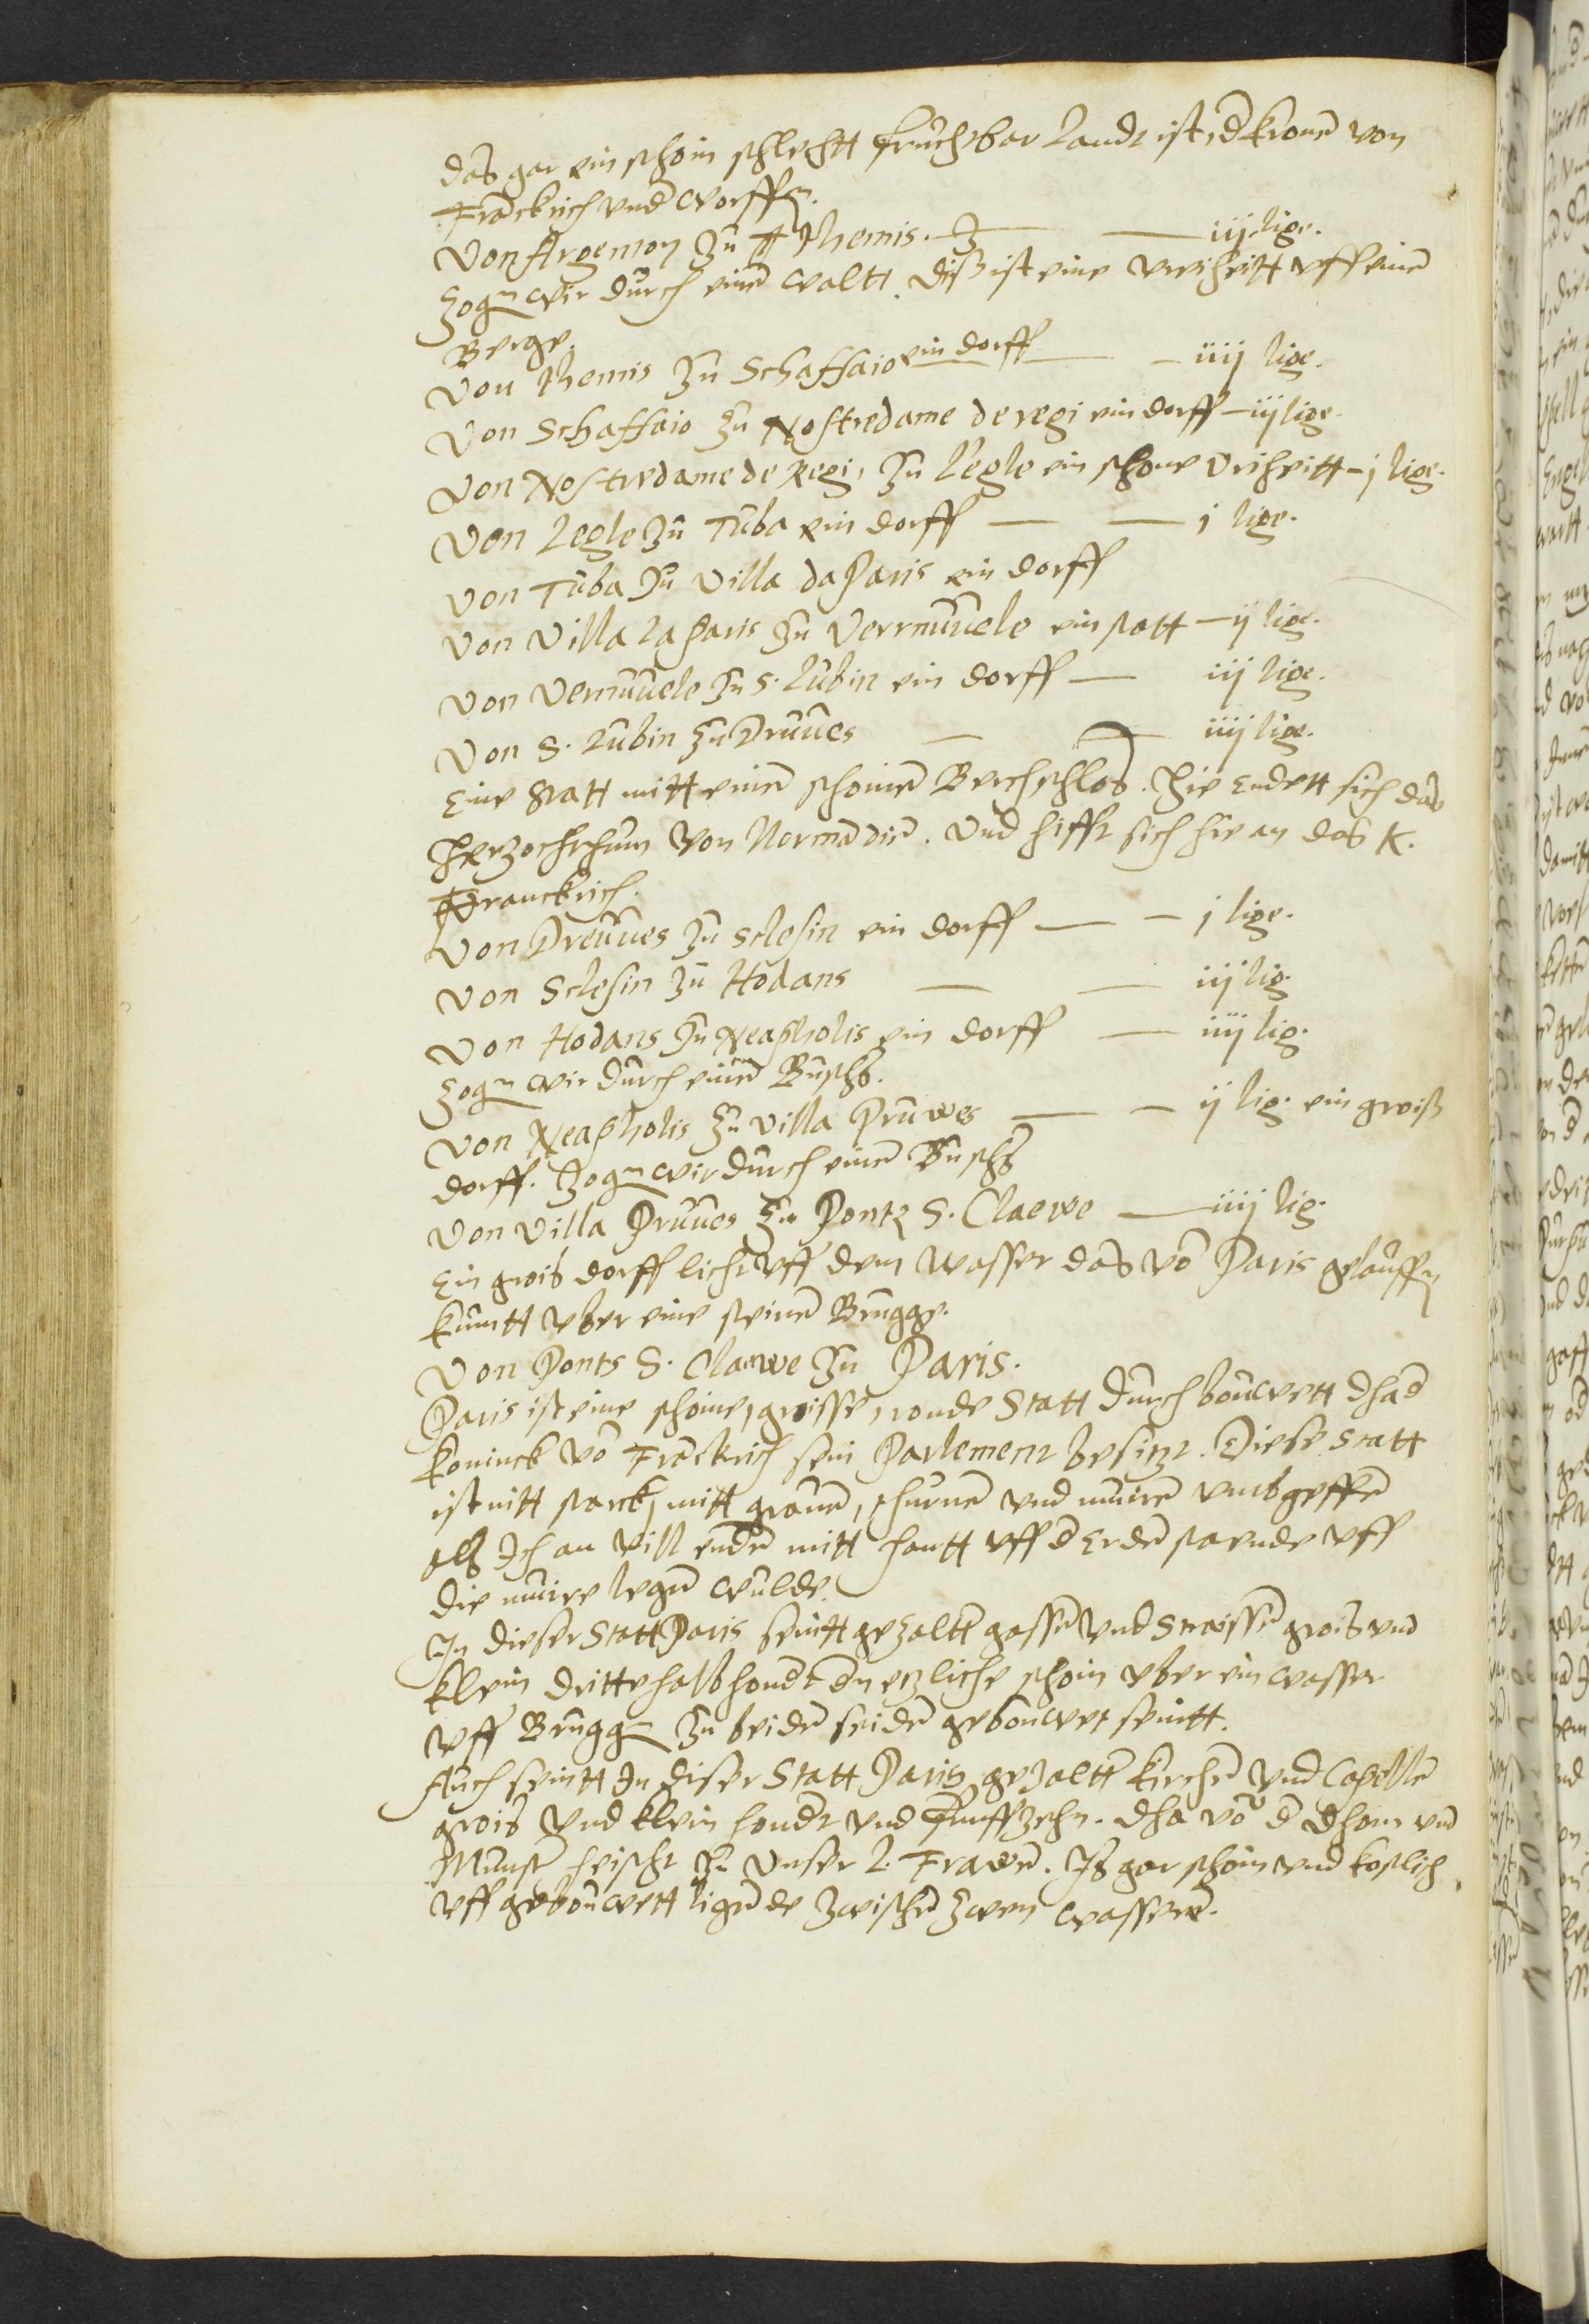 das gar ein schoin schlechtt fruchtbar Landt ist, d̄ kronē von
Frāckrich vnd̄ worffen.
Von Argenton zu Themis. — iij lige.
Zogen wir durch einē waltt. Diß ist eine vriheitt vff einē
Berge.
Von Themis zu Schaffaio ein dorff — iiij lige.
Von Schaffaio zu Nostredame de regi ein dorff — iij lige.
Von Nostredame de Regi, zu L'egle ein schone vriheitt — j lige.
Von Legle zu Tuba ein dorff — — j lige.
Von Tuba zu Villa da Paris ein dorff
Von Villa la Paris zu Vernuuele ein statt — ij lige.
Von Vernuuele zu S. Lubin ein dorff — iij lige.
Von S. Lubin zu Druues — — iiij lige.
Eine statt mitt einē schoinē Berchschlos. Hie endett sich das
Hertzochthum von Normādiē. Vnd hifft sich hie an das K.
Franckrich.
Von Dreuues zu Sclesin ein dorff — — j lige.
Von Sclesin zu Hodans — — iij lig.
Von Hodans zu Neapholis ein dorff — iiij lig.
Zogen wir durch einē Busch.
Von Neapholis zu villa Pruwes — — ij lig. ein groiß
dorff. Zogen wir durch einē Busch
Von villa Pruues zu Pontz S. Claewe — iiij lig.
Ein grois dorff licht vff dem wasser das vō Paris gelauffen
kumtt vber eine steinē Brugge.
Von Ponts S. Clauwe zu Paris.
Paris ist eine schoine, groisse, ronde Statt durchbouwett dha d̄
koninck vō Frāckrich sein Parlement besitzt. Diese statt
ist nitt starck, mitt grauē, thurnē vnd muirē vmbgeffē
als Ich an vill endē mitt hantt vff d̄ Erdē staende vff
die muire legē wulde.
In dieser Statt Paris seintt gezaltt gassē vnd Straissē grois vnd
klein drittehalbhondt dn etzliche schoin vber ein wasser
vff Bruggen zu beidē seidē gebouwet seintt.
Auch seintt In diser Statt Paris gezaltt kirchē vnd Capellē
grois vnd klein hondt vnd funffzehn. Dha vō d̄ Dhom vnd
Munst heischt zu vnser L. Frawē. Is gar schoin vnd kostlich
vff gebouwett ligēde zwischē zwen wasserē.